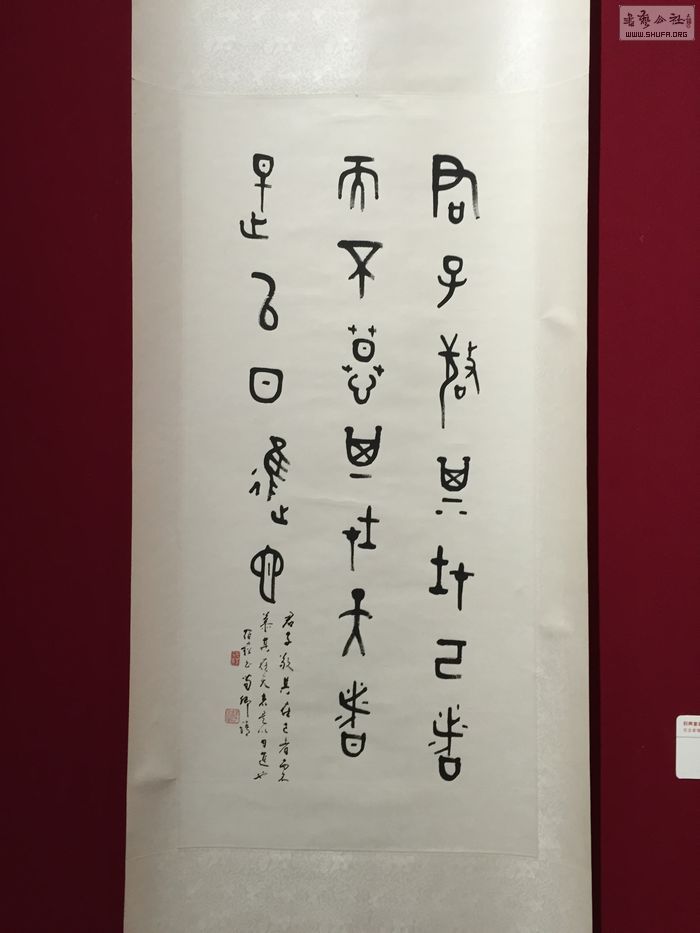 君子敬其在己者
而不慕其在天者
是以日進也
君子敬其在己者而不
慕其在天者是以日進也
書荀卿語
書藝公社
WWW.SHUFA.ORG